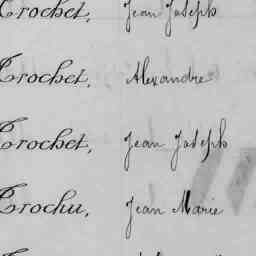 Crochet, Jean Joseph
Crochet, Alexandre
Crochet, Jean Joseph
Crochu, Jean Marie